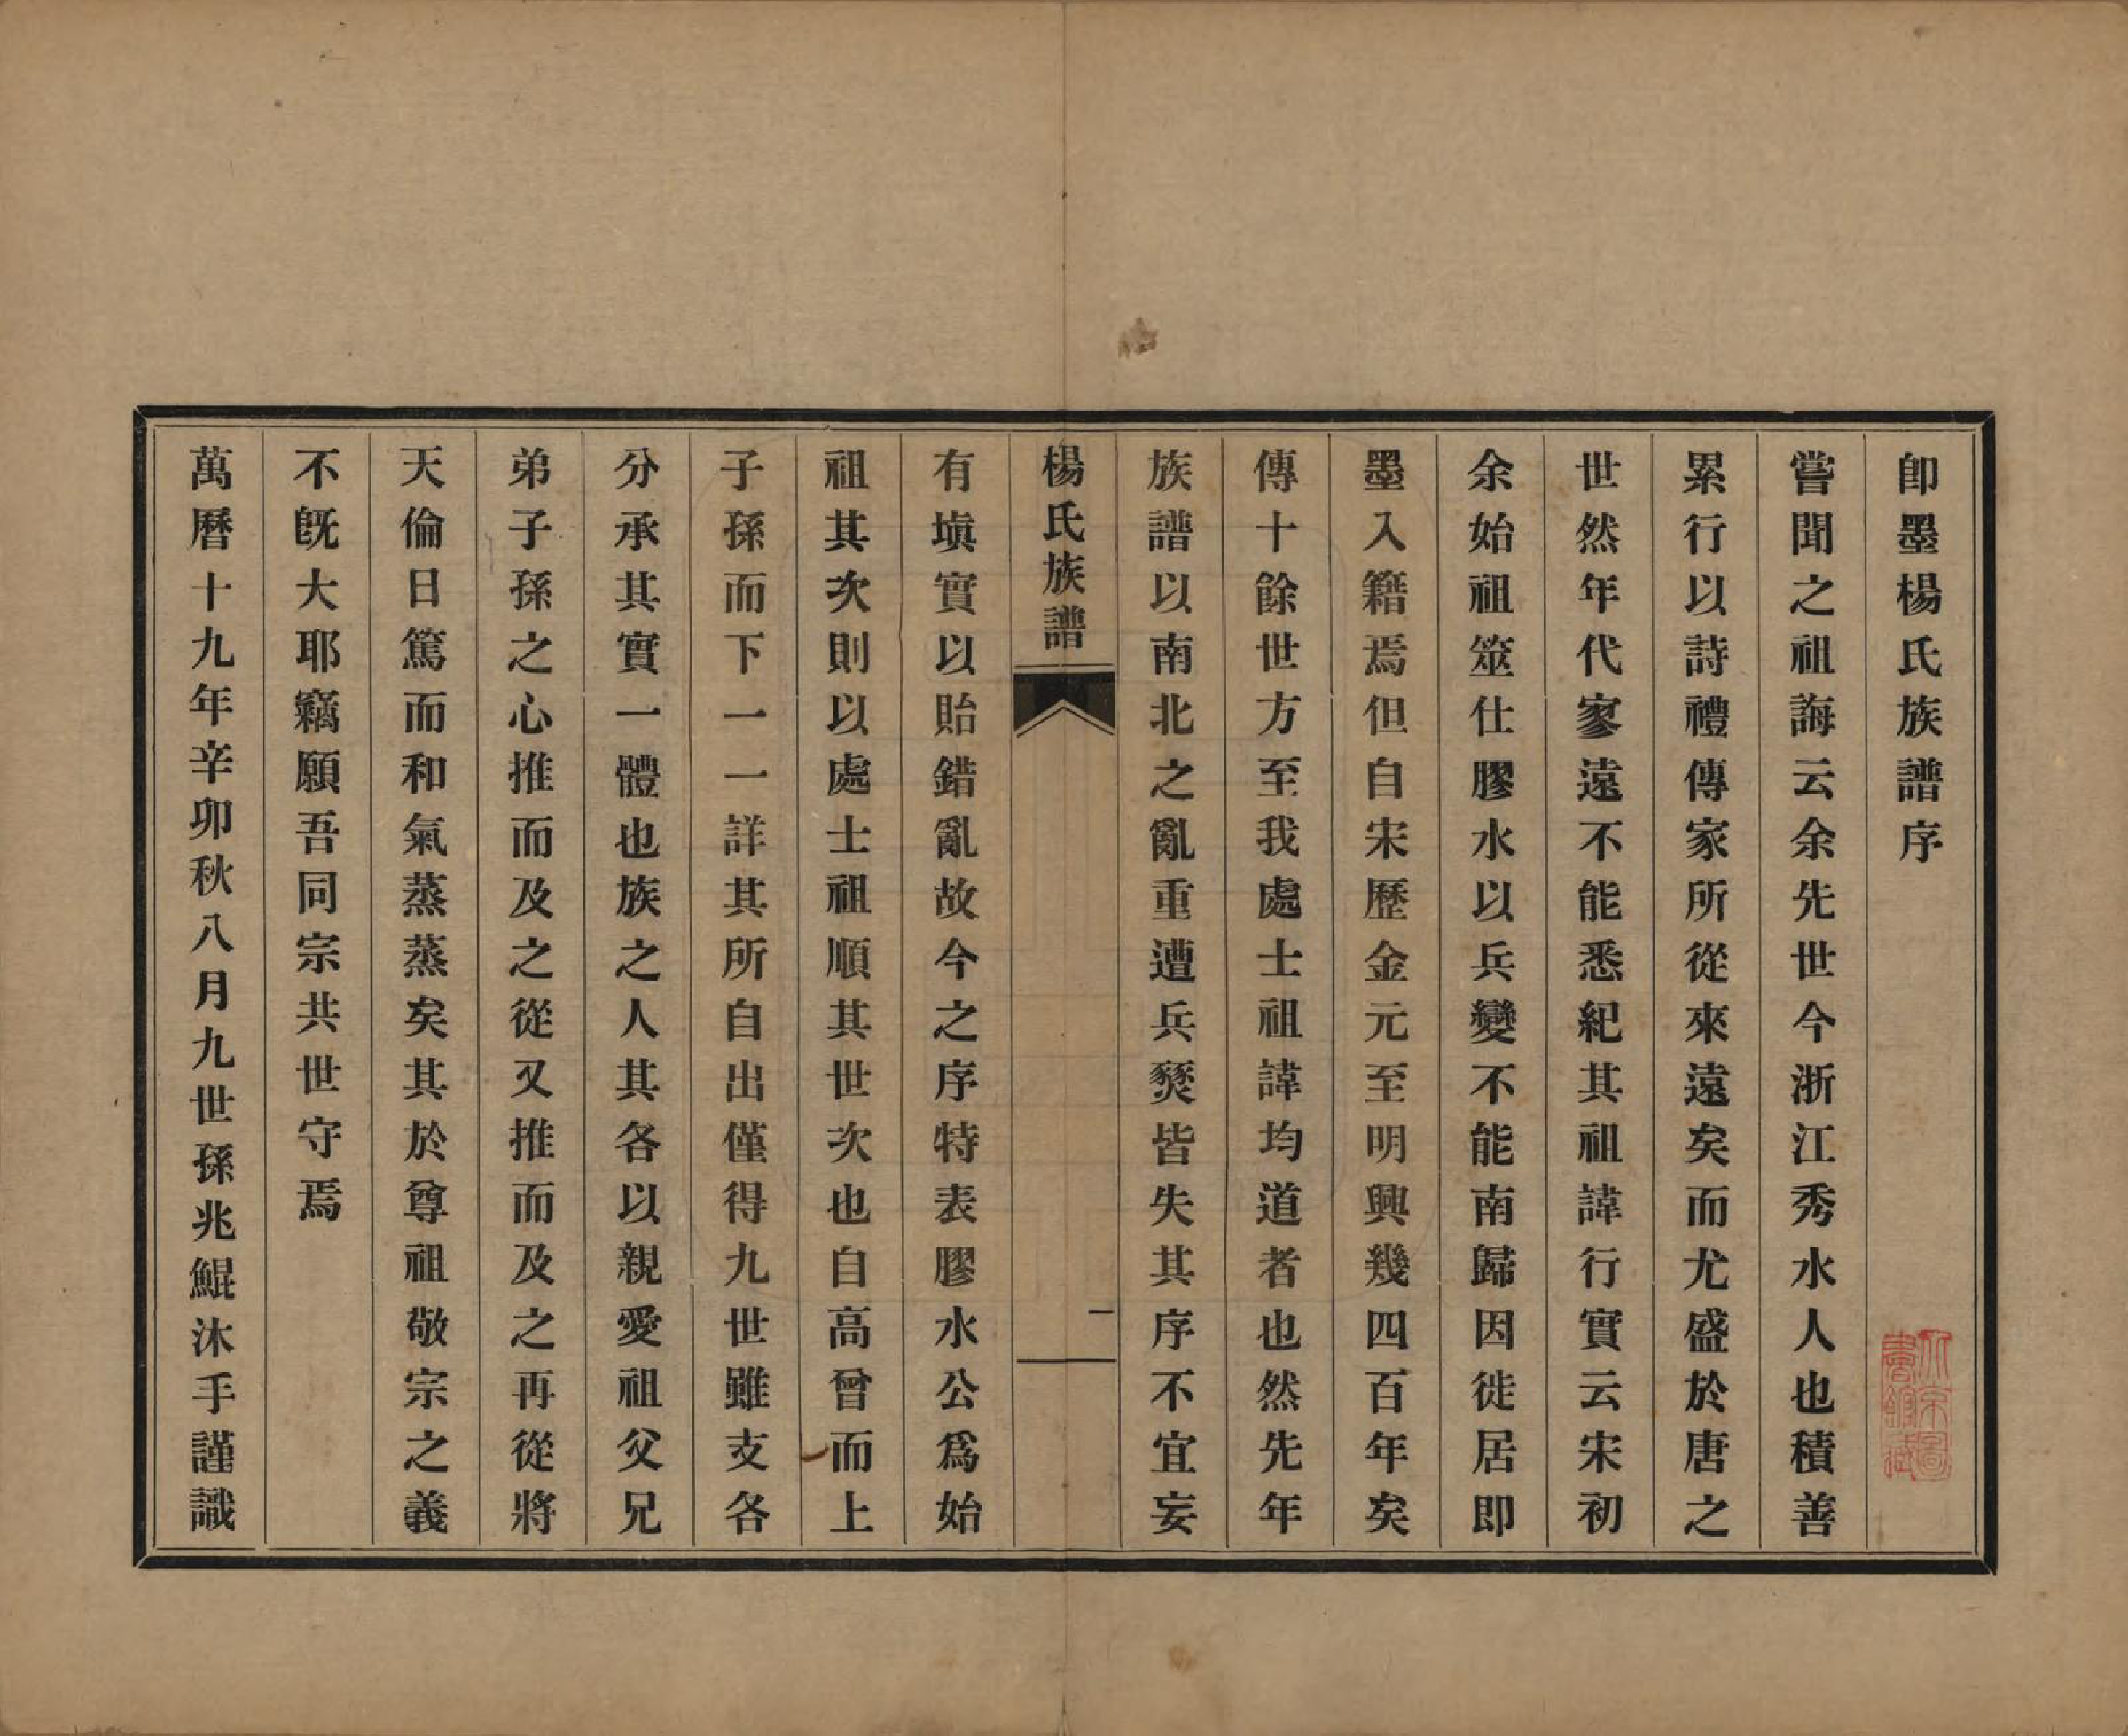 卽墨楊氏族譜序
嘗聞之祖誨云余先世今浙江秀水人也積善
累行以詩禮傳家所從來遠矣而尤盛於唐之
世然年代寥遠不能悉紀其祖諱行實云宋初
余始祖筮仕膠水以兵變不能南歸因徙居即
墨入籍焉但自宋歷金元至明興幾四百年矣
傳十餘世方至我處士祖諱均道者也然先年
族譜以南北之亂重遭兵燹皆失其序不宜妄
楊氏族譜
一
有塡實以貽錯亂故今之序特表膠水公爲始
祖其次則以處士祖順其世次也自高曾而上
子孫而下一一詳其所自出僅得九世雖支各
分承其實一體也族之人其各以親愛祖父兄
弟子孫之心推而及之從又推而及之再從將
天倫日篤而和氣蒸蒸矣其於尊祖敬宗之義
不旣大耶竊願吾同宗共世守焉
萬曆十九年辛卯秋八月九世孫兆鯤沐手謹識
北京圖書館藏